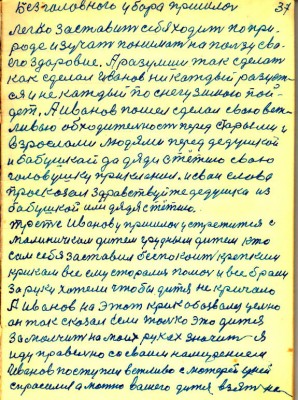 без головного убора пришлось 37
легко заставит себя ходит по при-
роде изучат понимат на ползу сво-
его здоровие. А разумия так сделат
как сделал Иванов ни каждый разует-
ся и не каждый по снегу зимою пой-
дет, А Иванов пошел сделал свою веж-
ливою обходителност перед старыми и
взрослами людями перед дедушкой
и бабушкай да дядя с тётию свою
головушку приклонял. и свои слова
проскозал здравствуйте дедушка из
бабушкой или дядя с тётию.
Иванову пришлос устретится с
малиничкам дитем грудным дитем кто
сам себя заставил беспокоит крепким
крикам все ему старалис помоч и все брали
за руку хотели чтобы дитя не кричало
А Иванов на этот крик обозвался целно
он так сказал если толко это дитя
замолчит на моих руках значит я
иду правелно со своим намерением
Иванов поступил вежливо с матерей
спрасился а можно вашего дитя взят на